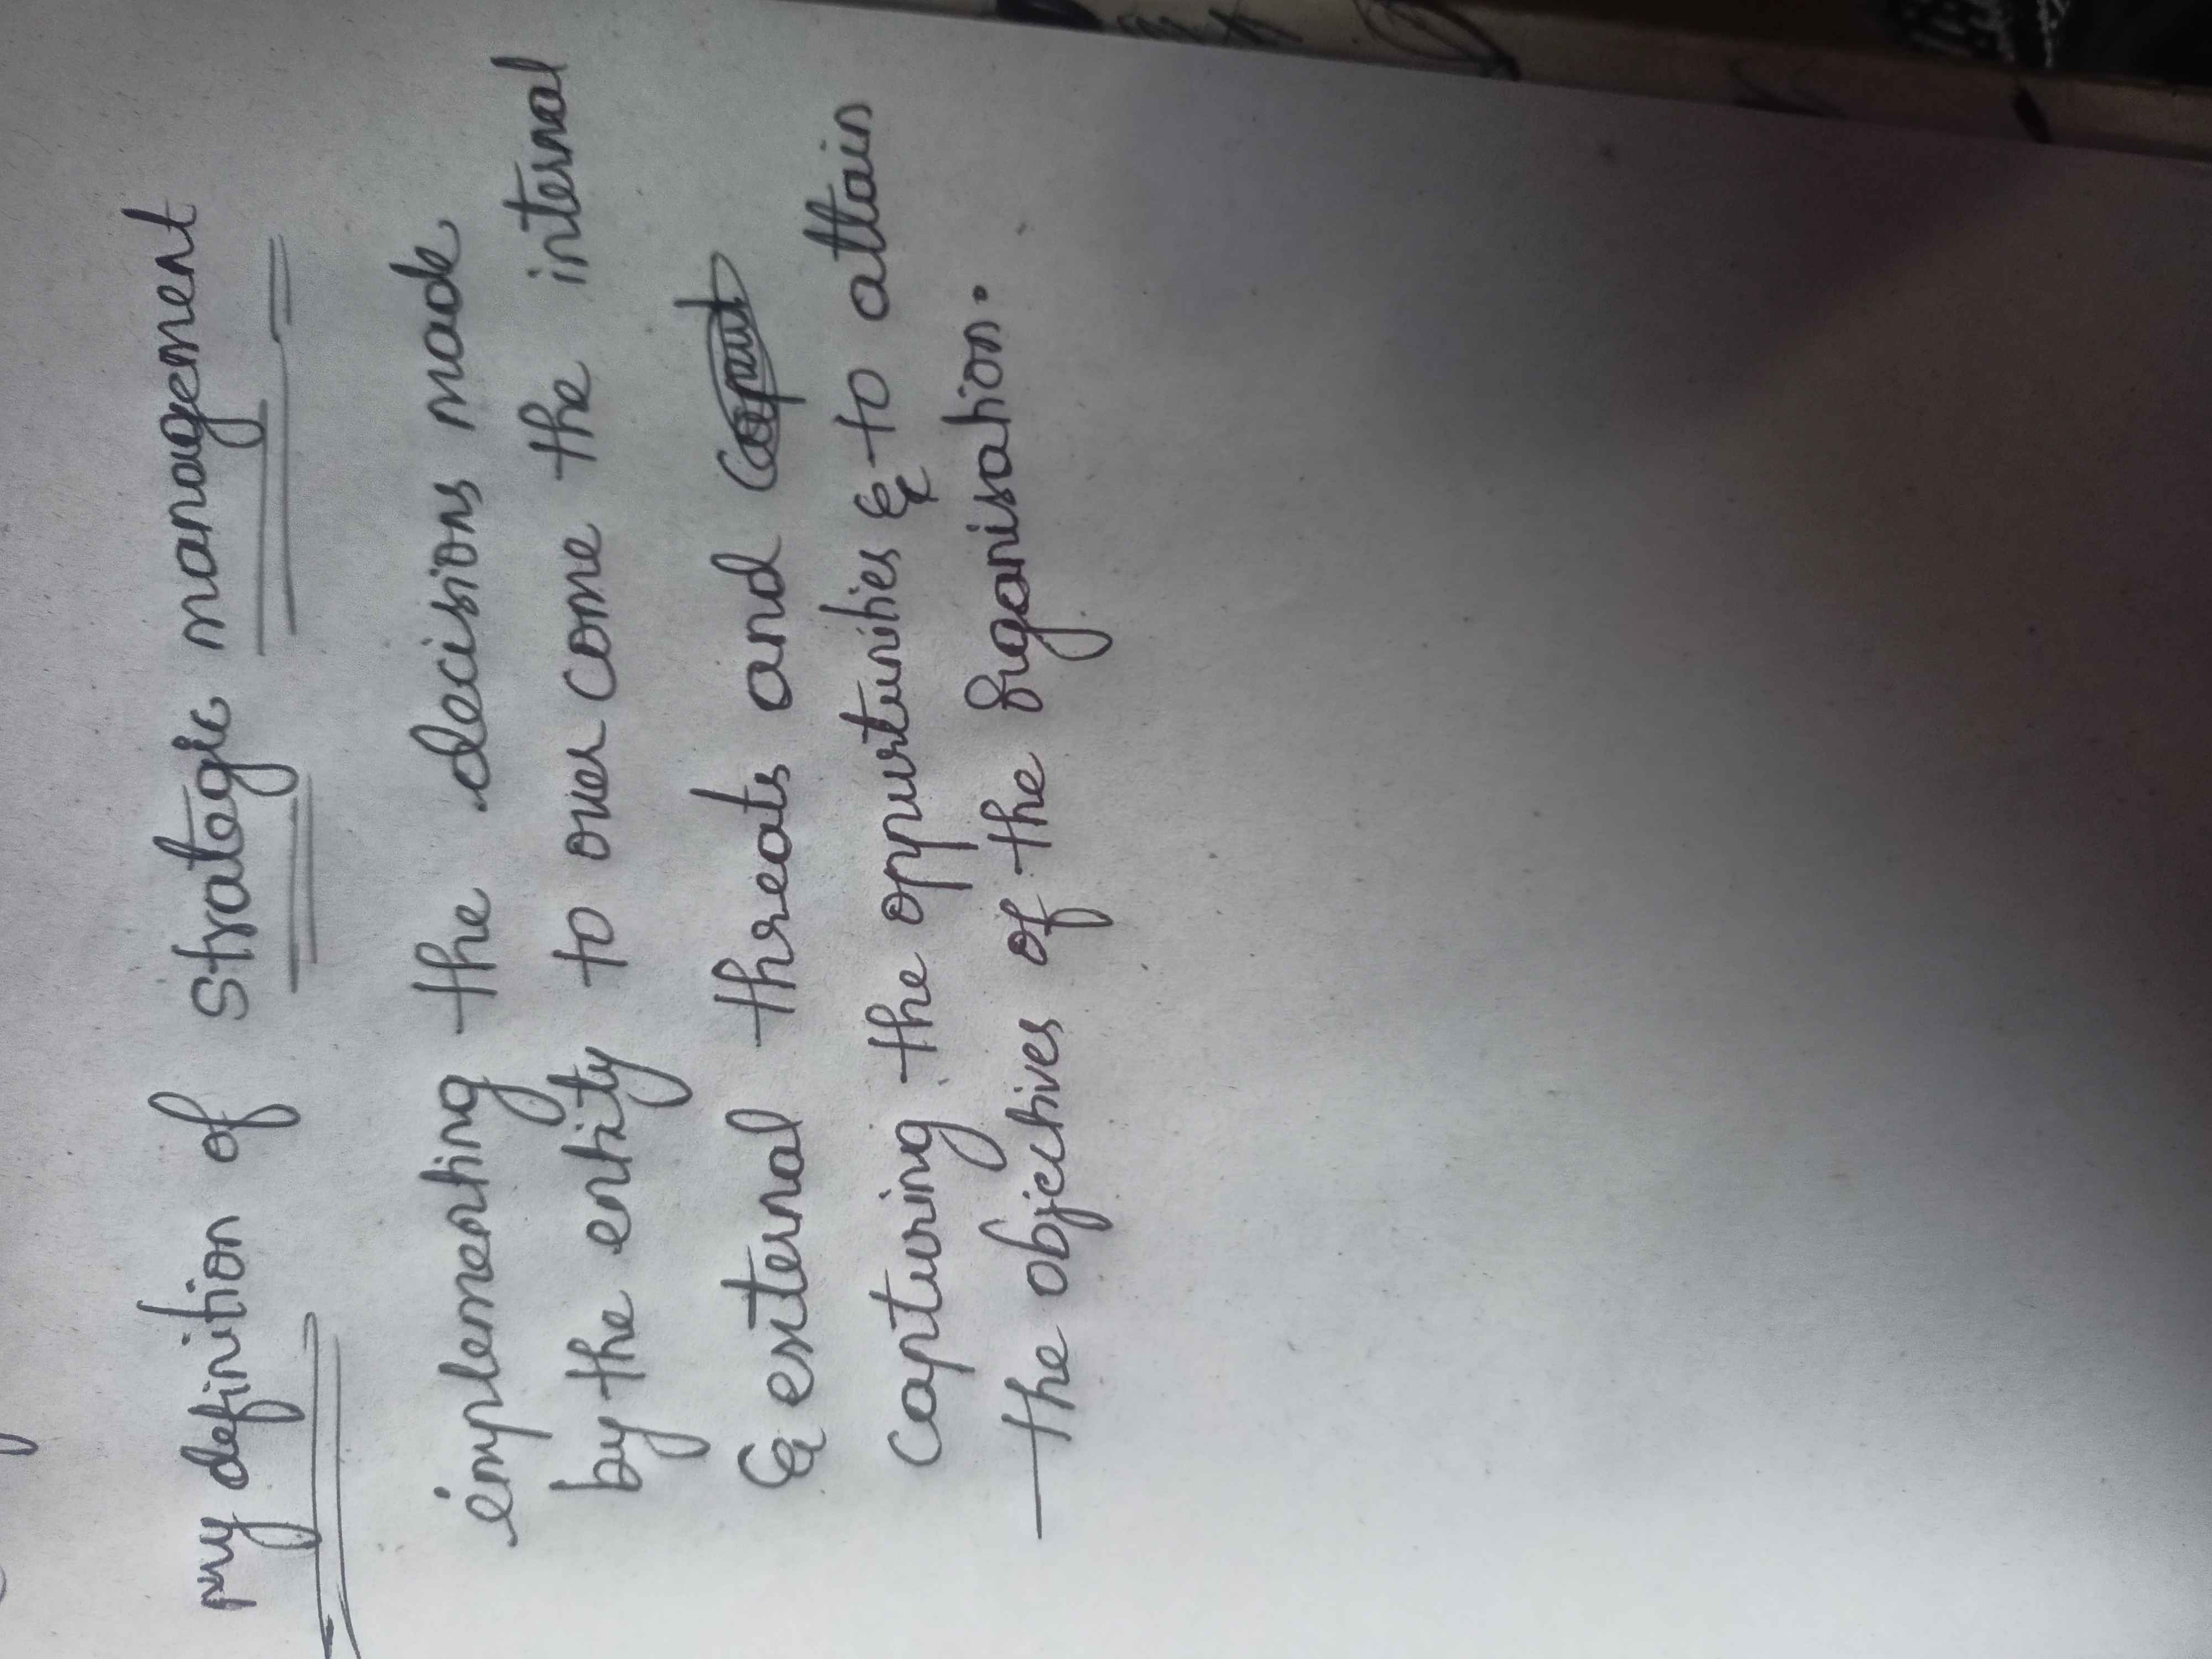 my definition of strategic management
implementing the decisions made
by the entity to over come the internal
& external threats and
capturing the oppurtunities & to attain
the objectives of the organisation.